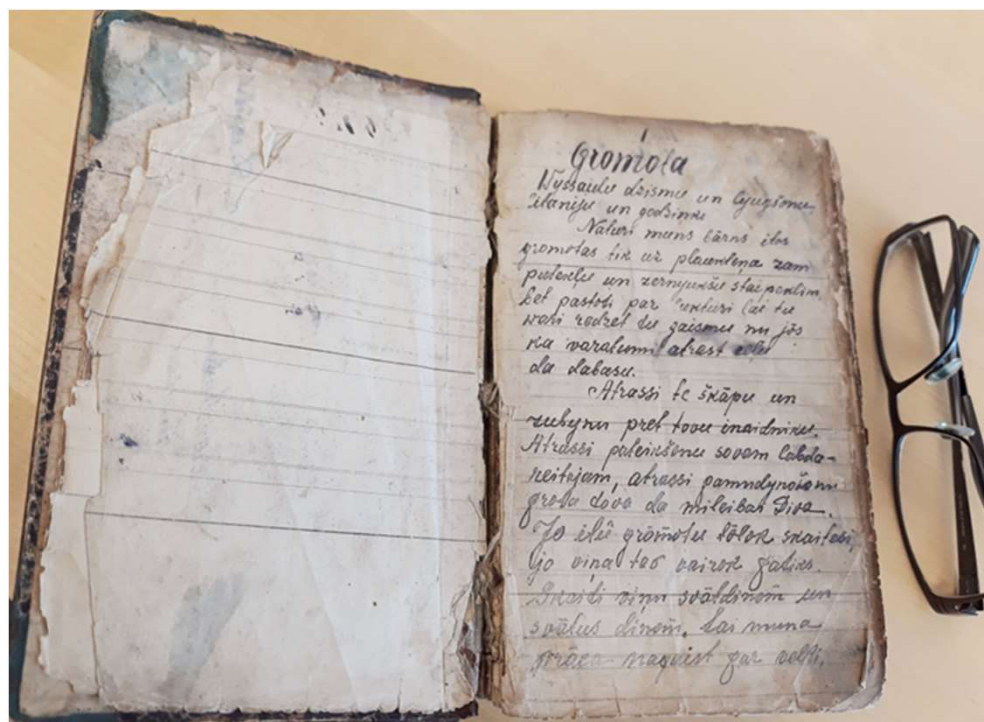 1
Gromota
Wyssaidu dzismu un lyugšonu,
litaniju un godzinku
Naturi muns bārns itos
gromotas tik uz plaukteņa zam
putekļu un zernyukšu staipeklim,
bet pastoti par lukturi lai tu
wari redzet tu gaismu nu jōs
ka varatumi atrast ceļu
da dabasu.
Atrassi te škāpu un
zubynu pret tovu inaidniku.
Atrassi pateikšonu sovam labda-
reitajam, atrassi pamudynošonu
grāka dova da mileibas Diva.
Jo itū grōmotu tōlok skaitesi,
jo viņa tev vairok patiks.
Skaiti viņu svātdinom un
svātus dinom, lai muna
prāca napaist par velti.